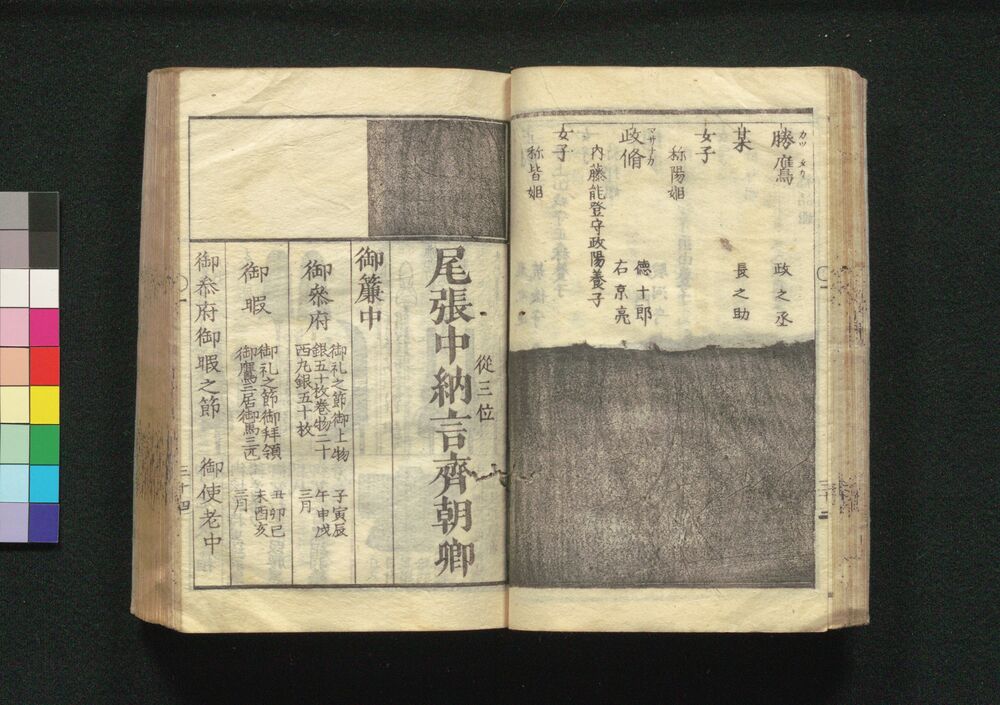 カツタカ
勝鷹 政之丞
某 長之助
女子
称陽姫
マサナカ
政脩 徳十郎
右京亮
内藤能登守政陽養子
女子
称皆姫
従三位
尾張中納言齊朝卿
御簾中
御叅府
御礼之節御上物
銀五十枚巻物二十
西九銀五十枚
子寅辰
午申戌
三月
御暇
御礼之節御拝領
御鷹三居御馬三疋
丑卯巳
未酉亥
三月
御叅府御暇之節 御使老中
三十四